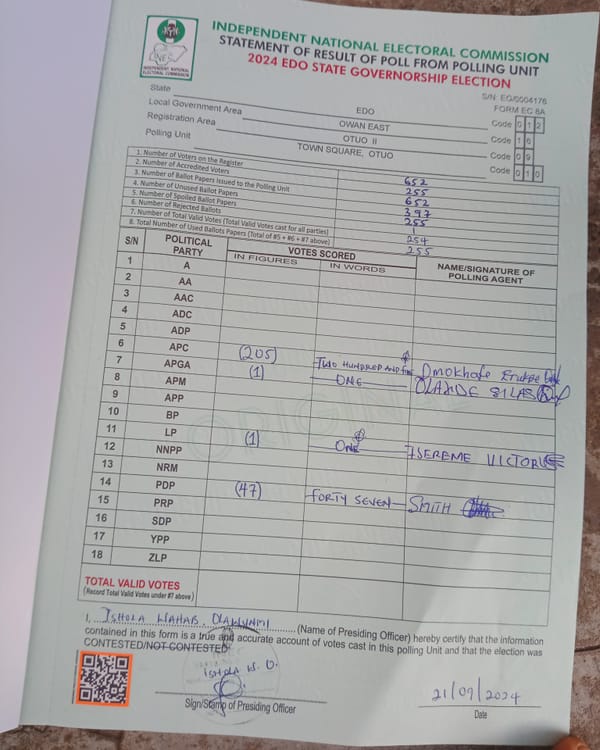 INEC
INDEPENDENT NATIONAL
ELECTORAL COMMISSION
INDEPENDENT NATIONAL ELECTORAL COMMISSION
STATEMENT OF RESULT OF POLL FROM POLLING UNIT
2024 EDO STATE GOVERNORSHIP ELECTION
S/N EG/0004176
FORM EC 8A
State EDO Code 012
Local Government Area OWAN EAST Code 16
Registration Area OTUO II Code 09
Polling Unit TOWN SQUARE, OTUO Code 010
1. Number of Voters on the Register 652
2. Number of Accredited Voters 255
3. Number of Ballot Papers Issued to the Polling Unit 652
4. Number of Unused Ballot Papers 397
5. Number of Spoiled Ballot Papers
6. Number of Rejected Ballots 1
7. Number of Total Valid Votes (Total Valid Votes cast for all parties) 254
8. Total Number of Used Ballots Papers (Total of #5 + #6 + #7 above) 255
S/N POLITICAL PARTY VOTES SCORED NAME/SIGNATURE OF POLLING AGENT
IN FIGURES IN WORDS
1 A
2 AA
3 AAC
4 ADC
5 ADP
6 APC (205) TWO HUNDRED AND
7 APGA (1) ONE OLANDE SILAS
8 APM
9 APP
10 BP
11 LP (1) ONE VICTOR
12 NNPP
13 NRM
14 PDP (47) FORTY SEVEN SMITH
15 PRP
16 SDP
17 YPP
18 ZLP
TOTAL VALID VOTES
(Record Total Valid Votes under #7 above)
ORIGINAL
I, ISHOLA WAHAB OLAWUNMI (Name of Presiding Officer) hereby certify that the information
contained in this form is a true and accurate account of votes cast in this polling Unit and that the election was
CONTESTED/NOT CONTESTED
ISHOLA W. O.
Sign/Stamp of Presiding Officer
21/09/2024
Date